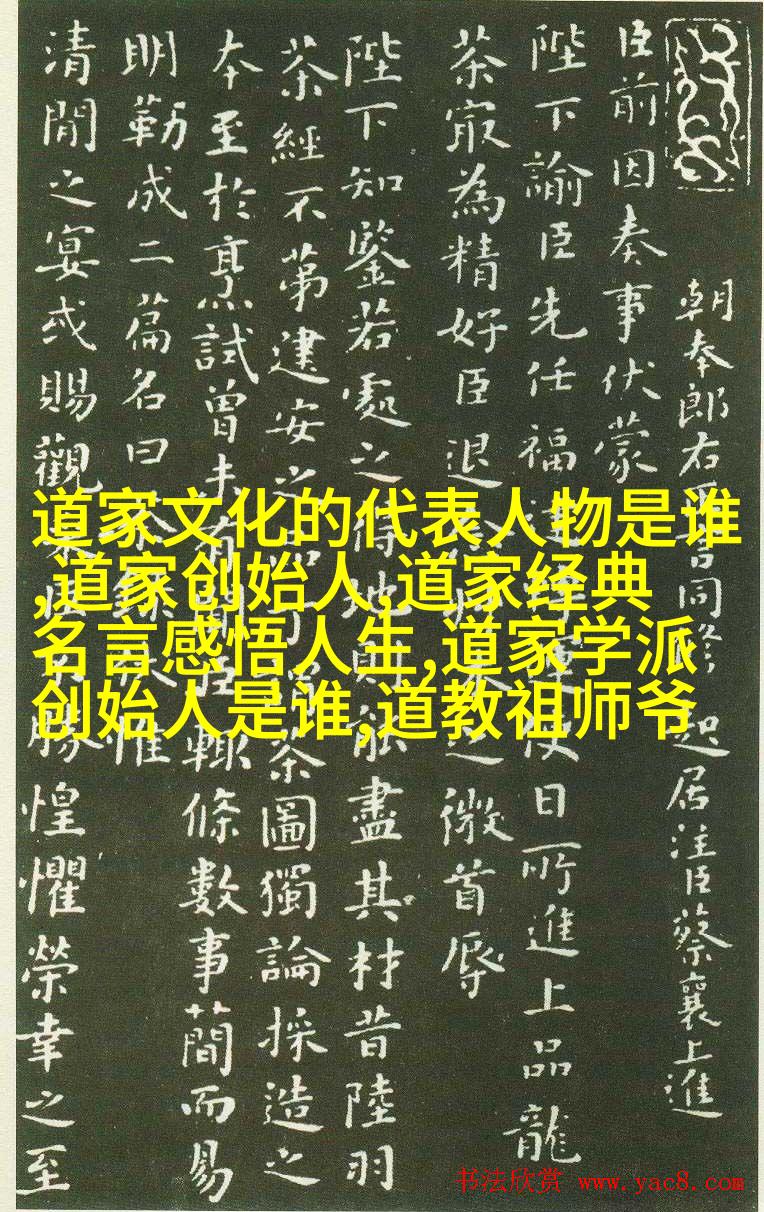 道家文化的代表人物是谁
,道家创始人,道家经典
名言感悟人生,道家学派
创始人是谁,道教祖师爷
朝奉郎右言同修起居注臣蔡襄上進
臣前因奏事伏蒙
陛下諭臣先任福使日所進上品龍
茶冣為精好臣退微首辱
陛下知鑒若處之得地則能盡其材昔陸羽
茶經不第建安之茶圖獨論採造之
本至於烹試曾未有輒條數事簡而易
明勒成二篇名曰惟
清閒之宴或賜觀勝惶懼榮幸之至
书法欣赏 www.yac8.com